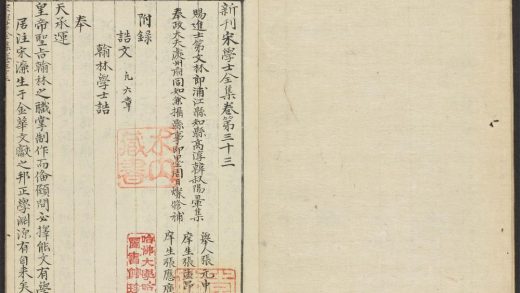 新刊宋學士全集卷第三十三
賜進士第文林郎浦江縣知縣高淳韓叔陽彙集
奉政大夫處州府同知兼攝縣事即墨周日燦修補
舉人張元中
庠生張孟昂
庠生張應廣
附錄
誥文 凡六章
翰林學士誥
奉
天承運
皇帝聖旨翰林之職掌制作而備顧問必擇能文有學
居注宋濂生于金華文獻之邦正學淵源有自來矣
哈佛大學哈
圖書館珍
藏書